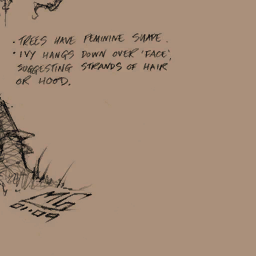 · TREES HAVE FEMININE SHAPE.
· IVY HANGS DOWN OVER 'FACE',
SUGGESTING STRANDS OF HAIR
OR HOOD.
MG
01·09